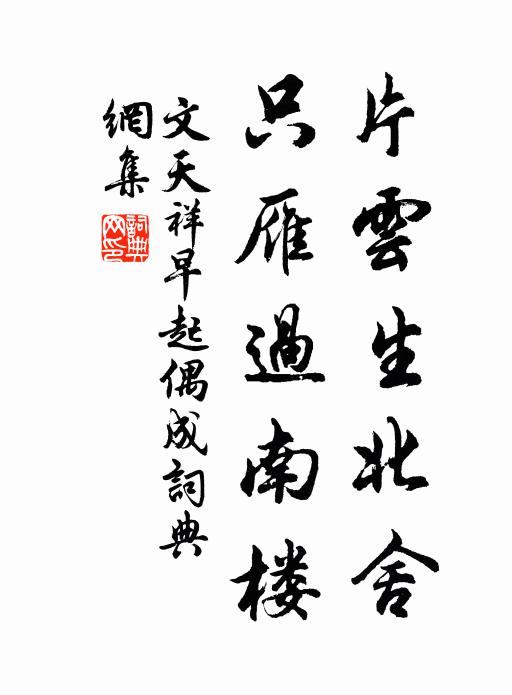 片雲生北舍
只雁過南楼
文天祥早起偶成詞典
網集
詞典
网印